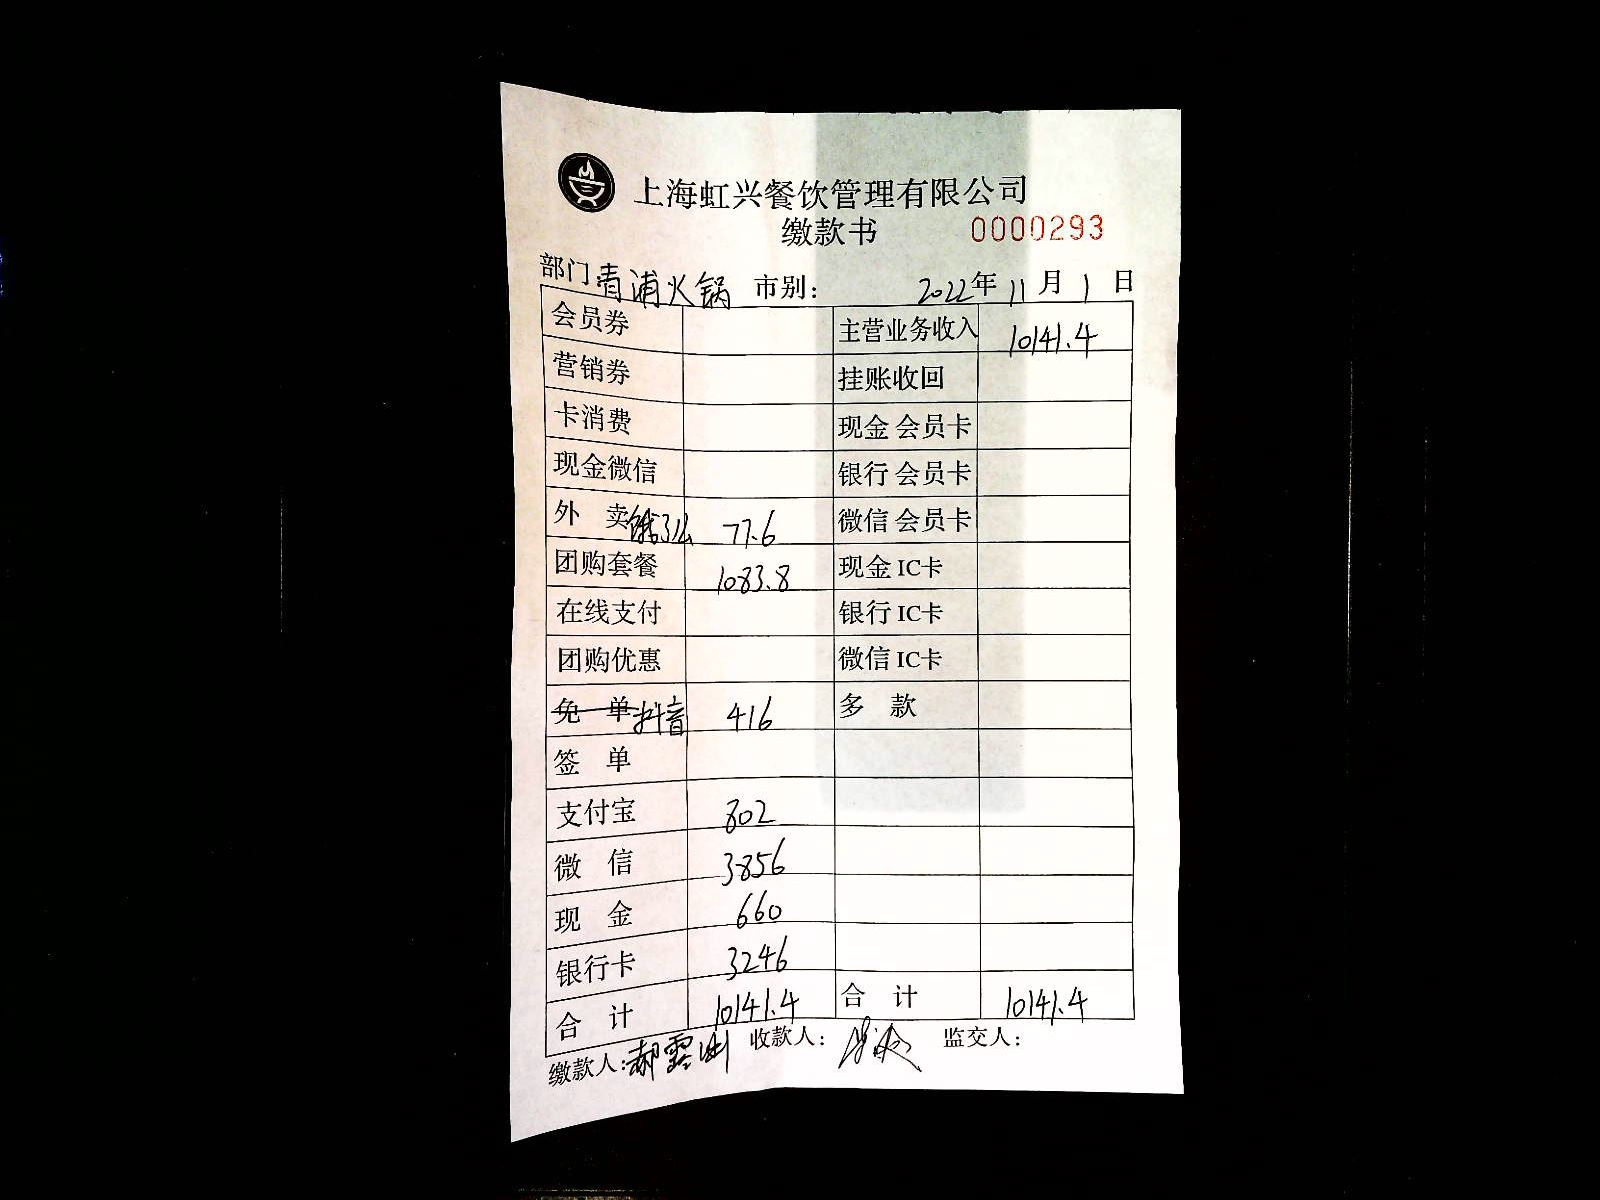 上海虹兴餐饮管理有限公司
缴款书 0000293
部门:青浦火锅 市别: 2022年11月1日
会员券 主营业务收入 10141.4
营销券 挂账收回
卡消费 现金 会员卡
现金微信 银行 会员卡
外 卖 饿了么 77.6 微信 会员卡
团购套餐 1083.8 现金 IC卡
在线支付 银行 IC卡
团购优惠 微信 IC卡
免 单 抖音 416 多 款
签 单
支付宝 802
微 信 3856
现 金 660
银行卡 3246
合 计 10141.4 合 计 10141.4
缴款人: 收款人: 监交人: